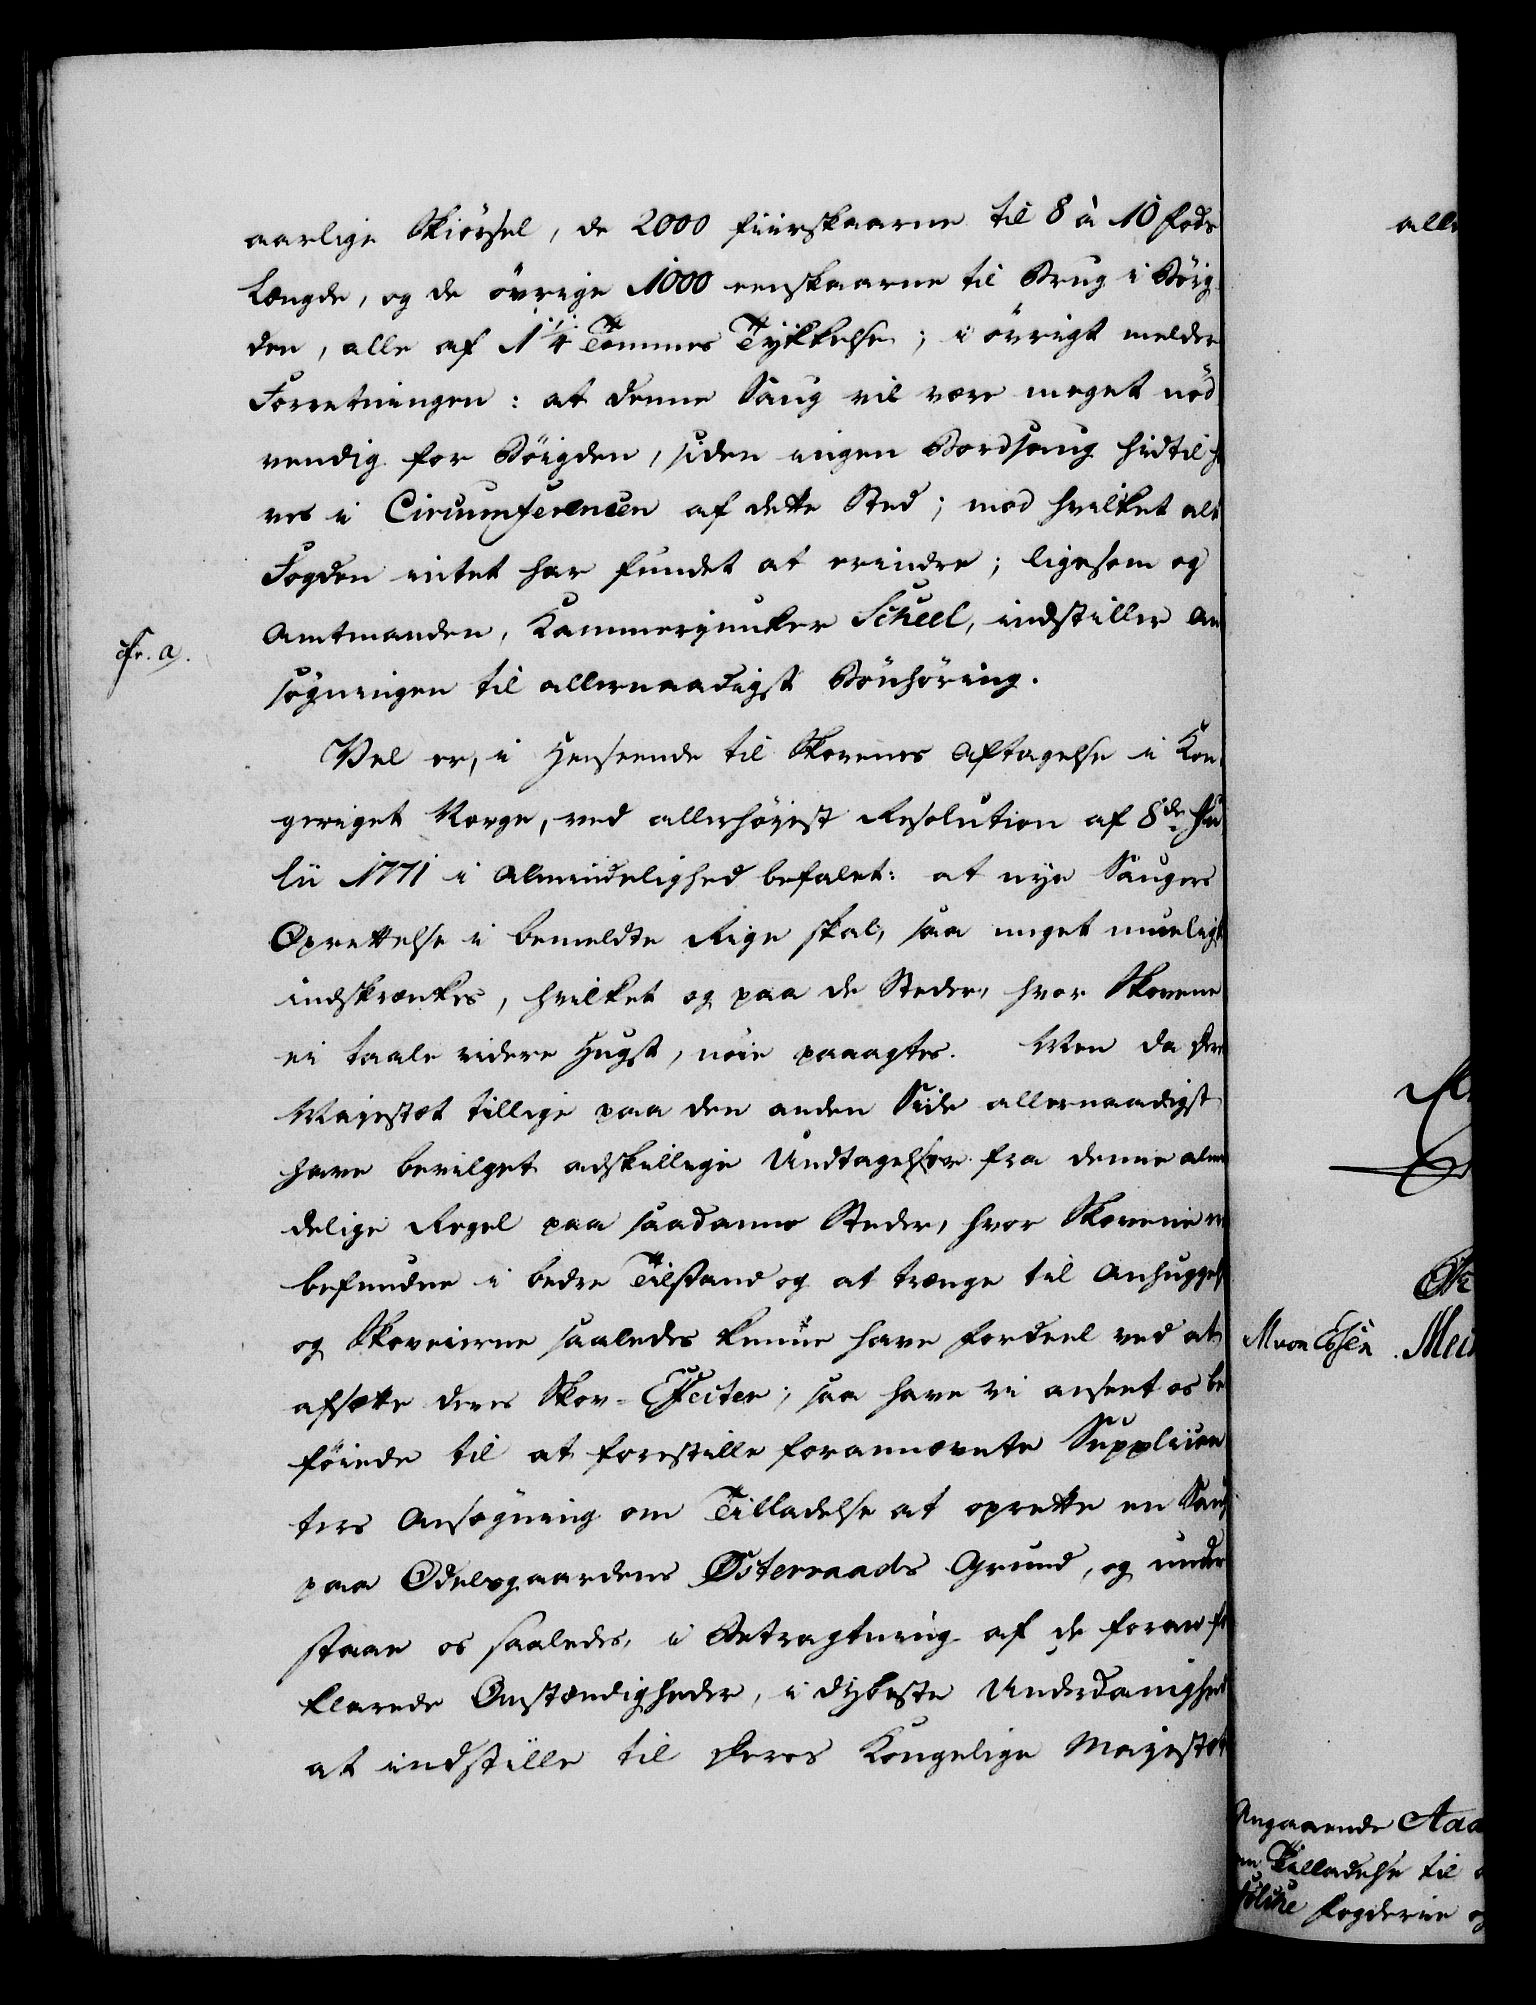 aarlige Skiörsel, de 2000 fiirskaarne til 8 à 10 fods
Længde, og de övrige 1000 eenskaarne til Brug i Böig-
den, alle af 1 1/4 Tommes Tykkelse; i övrigt melder
Forretningen: at denne Saug vil være meget nöd
vendig for Böigden, siden ingen Bordsaug hidtil ha
ves i Circumferencen af dette Sted; mod hvilket alt
Fogden intet har fundet at erindre; ligesom og
Amtmanden, Kammerjunker Scheel, indstiller An
cfr. a.
søgningen til allernaadigst Bönhöring.
Vel er, i Henseende til Skovenes Aftagelse i Kon
geriget Norge, ved allerhöyest Resolution af 8de Ju
lii 1771 i Almindelighed befalet: at nye Saugers
Oprettelse i bemeldte Rige skal, saa meget mueligt
indskrænkes, hvilket og paa de Steder, hvor Skovene
ei taale videre Hugst, nöie paaagtes. Men da Deres
Majestæt tillige paa den anden Side allernaadigst
have bevilget adskillige Undtagelser fra denne almin
delige Regel paa saadanne Steder, hvor Skovene er
befundne i bedre Tilstand og at trænge til Anhuggelse
og Skoveierne saaledes kunne have fordeel ved at
afsætte deres Skov-Effecter; saa have vi anseet os be
föiede til at forestille forannævnte Supplican
ters Ansögning om Tilladelse at oprette en Saug
paa Odelsgaardens Østeraads Grund, og under
staae os saaledes, i Betragtning af de foran for
klarede Omstændigheder, i dybeste Underdanighed
at indstille til Deres Kongelige Majestæt
alle
M von Essen. Mei
Angaaende Aad
om Tilladelse til
Fogderie og